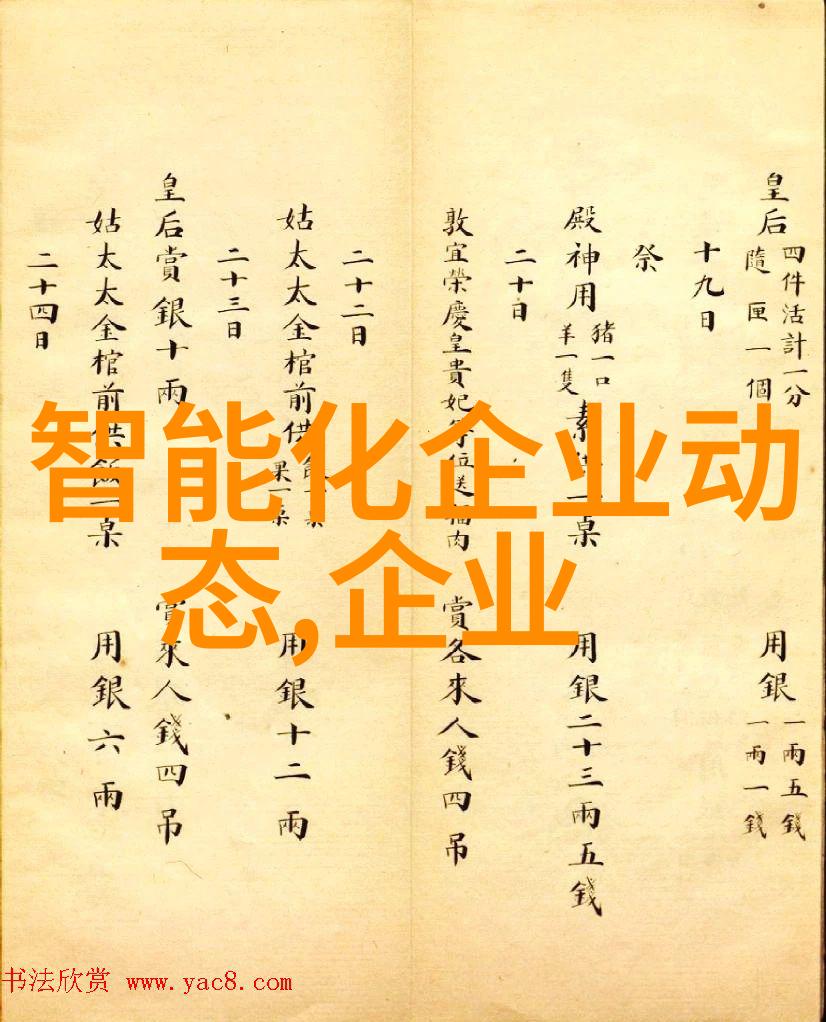 皇后
四件活計一分
隨匣一個
用銀
一兩五錢
一兩一錢
十九日
祭
殿神用
猪一口
羊一隻
素供一桌
用銀二十三兩五錢
二十日
敦宜榮慶皇貴妃
位送福肉
賞各來人錢四吊
二十二日
姑太太金棺前供
果一桌
用銀十二兩
二十三日
皇后賞銀十兩
賞來人錢四吊
姑太太金棺前供飯一桌
用銀六兩
二十四日
智能化企业动
态,企业
书法欣赏 www.yac8.com